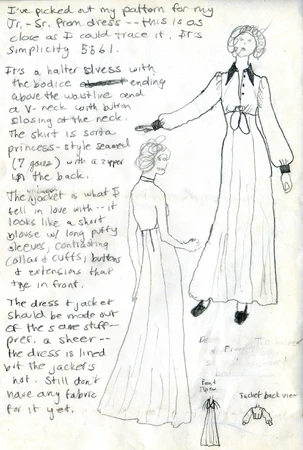 I've picked out my pattern for my
Jr.-Sr. Prom dress -- this is as
close as I could trace it. It's
Simplicity 5861.
It's a halter dress with
the bodice ending
above the waistline and
a V-neck with button
closing at the neck.
The skirt is sorta
princess-style seamed
(7 gores) with a zipper
in the back.
The jacket is what I
fell in love with -- it
looks like a short
blouse w/ long puffy
sleeves, contrasting
collar & cuffs, buttons
& extensions that
tie in front.
The dress & jacket
should be made out
of the same stuff --
pref. a sheer --
the dress is lined
but the jacket's
not. Still don't
have any fabric
for it yet.
Front
View
Jacket back view